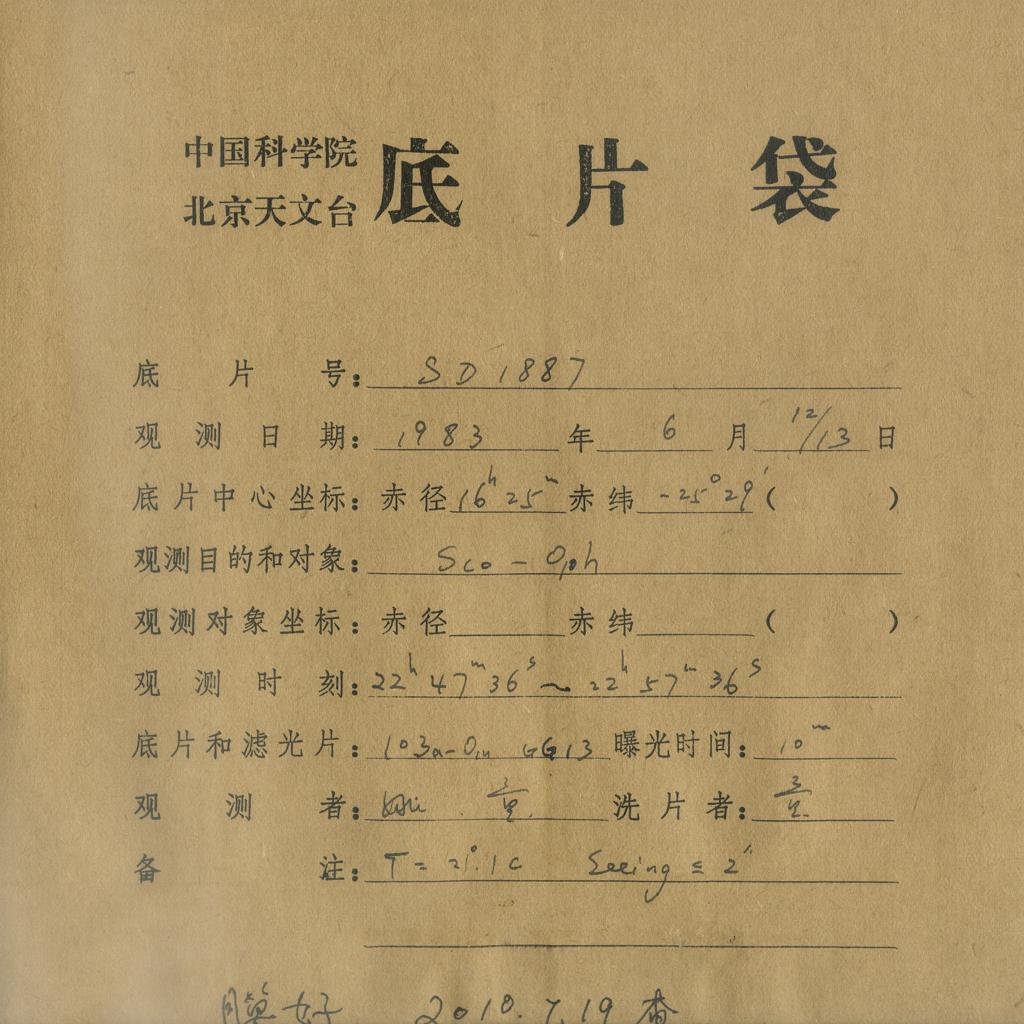 中国科学院
北京天文台 底片袋
底片号: SD1887
观测日期: 1983 年 6 月 12/13 日
底片中心坐标: 赤径 16h 25m 赤纬 -25°29′ ( )
观测目的和对象: Sco - Oph
观测对象坐标: 赤径 赤纬 ( )
观测时刻: 22h 47m 36s ~ 22h 57m 36s
底片和滤光片: 103a-O GG13 曝光时间: 10m
观测者: 洗片者:
备注: T = 21°.1C Seeing ≤ 2″
膜好 2010.7.19 查